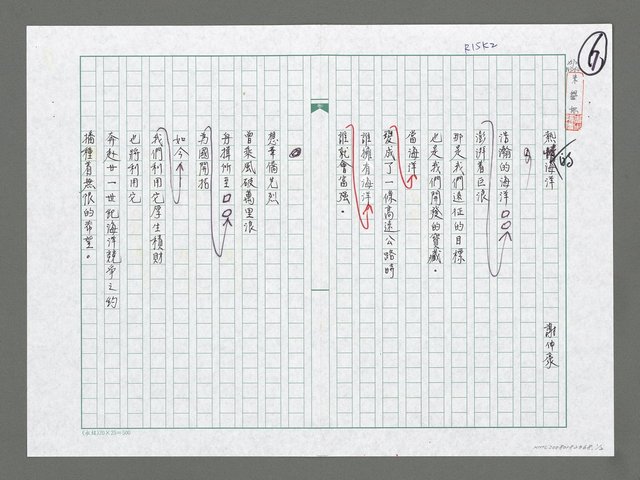 RISK2
6
熱情的海洋
謝仲裘
浩瀚的海洋
澎湃着巨浪
那是我們遠征的目標
也是我們開發的寶藏。
當海洋
變成了一條高速公路時
誰擁有海洋
誰就會富強。
想華僑先烈
曾乘風破萬里浪
丹撐所至
為國開拓
如今
我們利用它厚生積財
也將利用它
奔赴廿一世紀海洋競爭之約
播種着無限的希望。
20×25=500